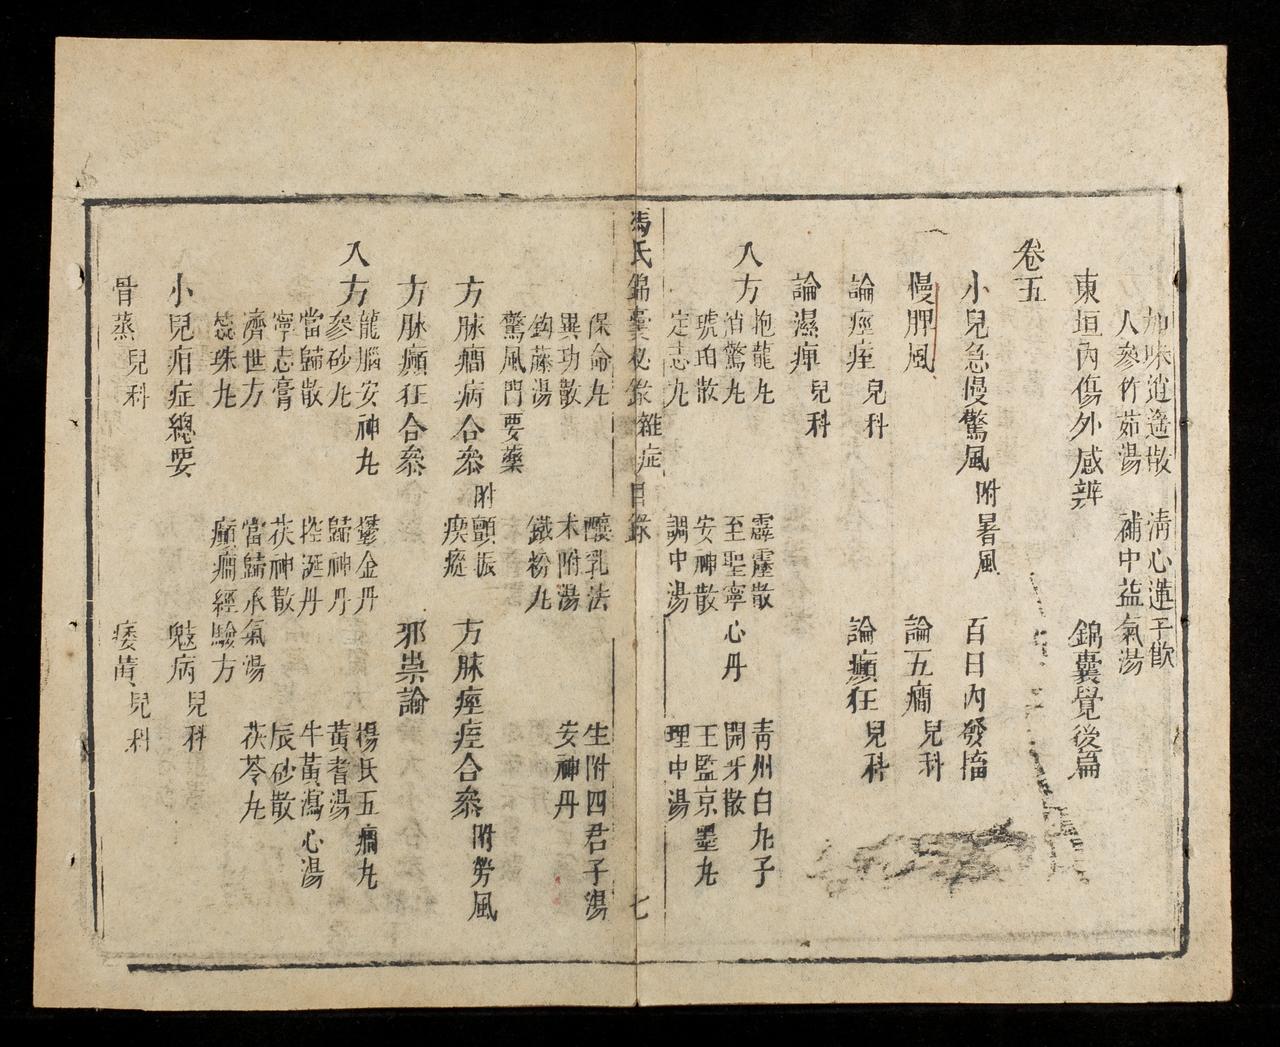 加味逍遙散　清心蓮子飲
人參竹茹湯　補中益氣湯
東垣內傷外感辨　錦囊覺後篇
卷五
小兒急慢驚風附暑風　百日內發搐
慢脾風　論五癇兒科
論痙痓兒科　論癲狂兒科
論濕痺兒科
入方
抱龍丸　霹靂散　青州白丸子
消驚丸　至聖寧心丹　開牙散
琥珀散　安神散　王監京墨丸
定志丸　調中湯　理中湯
馮氏錦囊秘錄雜症目錄　七
保命丸　釀乳法　生附四君子湯
異功散　木附湯　安神丹
鉤藤湯　鐵粉丸
驚風門要藥
方脉癇病合參附顫振瘈瘲　方脉痙痓合參附勞風
方脉癲狂合參　邪祟論
入方
龍腦安神丸　鬱金丹　楊氏五癇丸
參砂丸　歸神丹　黃耆湯
當歸散　控涎丹　牛黃瀉心湯
寧志膏　茯神散　辰砂散
濟世方　當歸承氣湯　茯苓丸
蕊珠丸　癲癇經驗方
小兒疳症總要　魃病兒科
骨蒸兒科　痿黃兒科